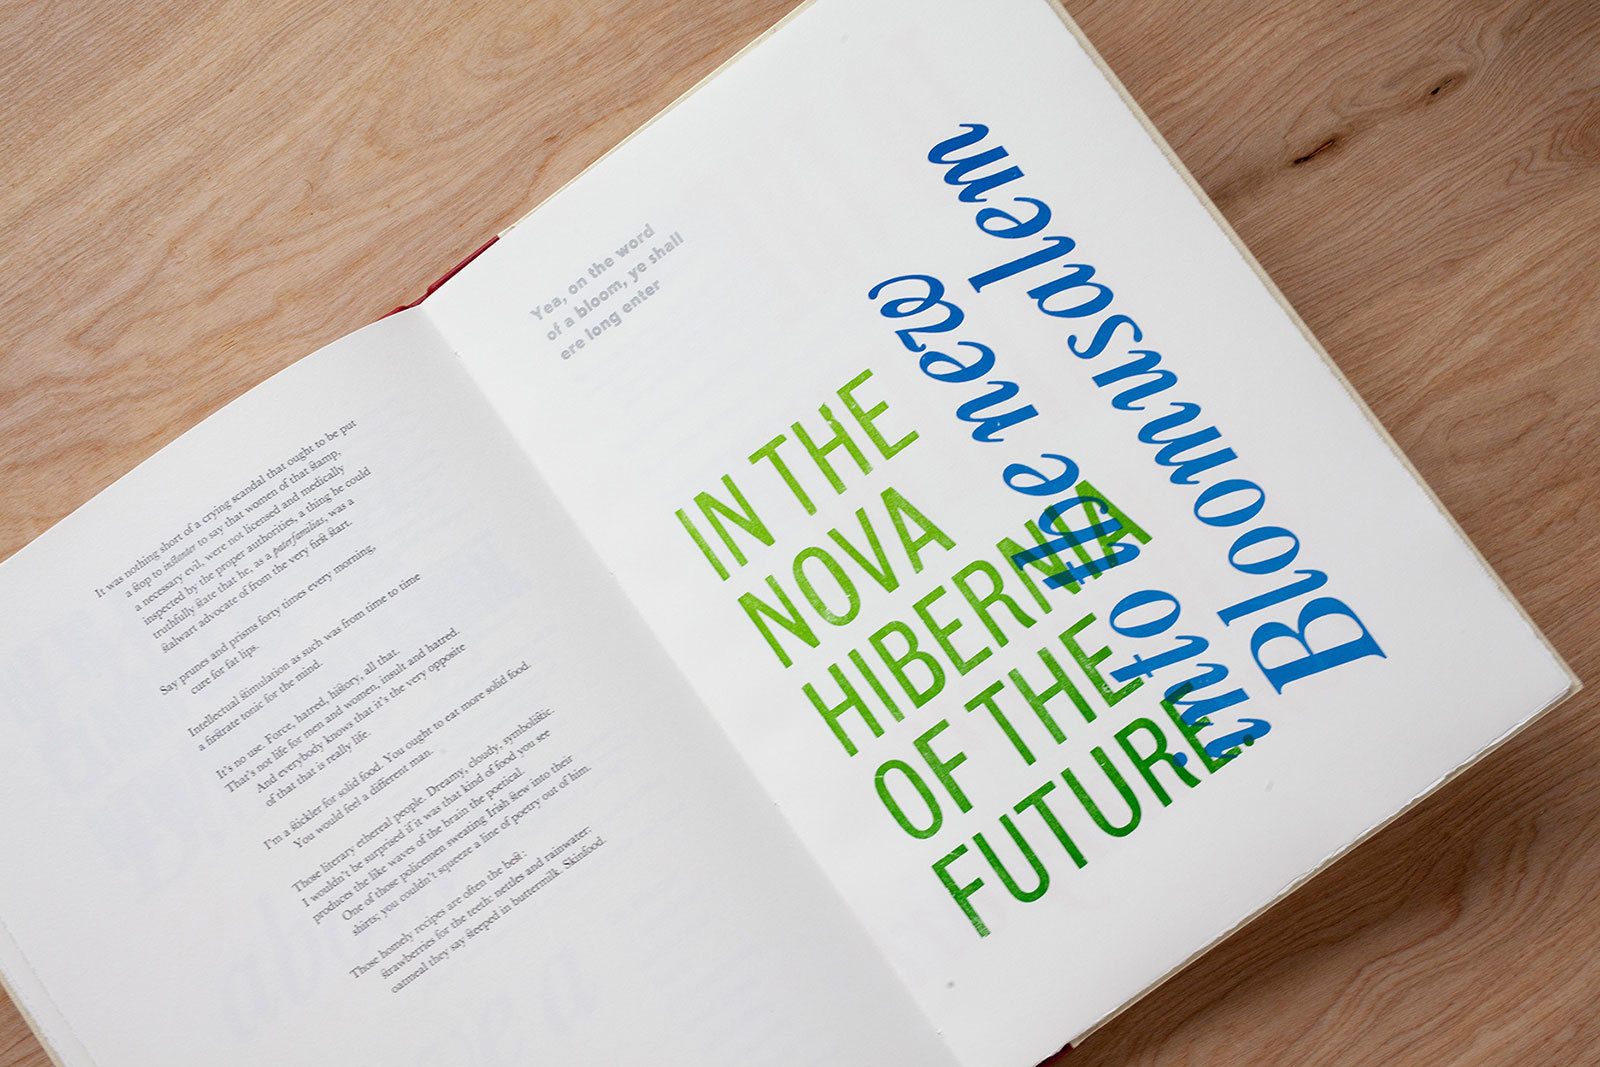 It was nothing short of a crying scandal that ought to be put
a stop to instanter to say that women of that stamp,
a necessary evil, were not licensed and medically
inspected by the proper authorities, a thing he could
truthfully state that he, as a paterfamilias, was a
stalwart advocate of from the very first start.
Say prunes and prisms forty times every morning,
cure for fat lips.
Intellectual stimulation as such was from time to time
a firstrate tonic for the mind.
It's no use. Force, hatred, history, all that.
That's not life for men and women, insult and hatred.
And everybody knows that it's the very opposite
of that that is really life.
I'm a stickler for solid food. You ought to eat more solid food.
You would feel a different man.
Those literary ethereal people. Dreamy, cloudy, symbolistic.
I wouldn't be surprised if it was that kind of food you see
produces the like waves of the brain the poetical.
One of those policemen sweating Irish stew into their
shirts; you couldn't squeeze a line of poetry out of him.
Those homely recipes are often the best:
strawberries for the teeth: nettles and rainwater:
oatmeal they say steeped in buttermilk. Skinfood.
Yea, on the word
of a bloom, ye shall
ere long enter
into the new
Bloomusalem
IN THE
NOVA
HIBERNIA
OF THE
FUTURE.